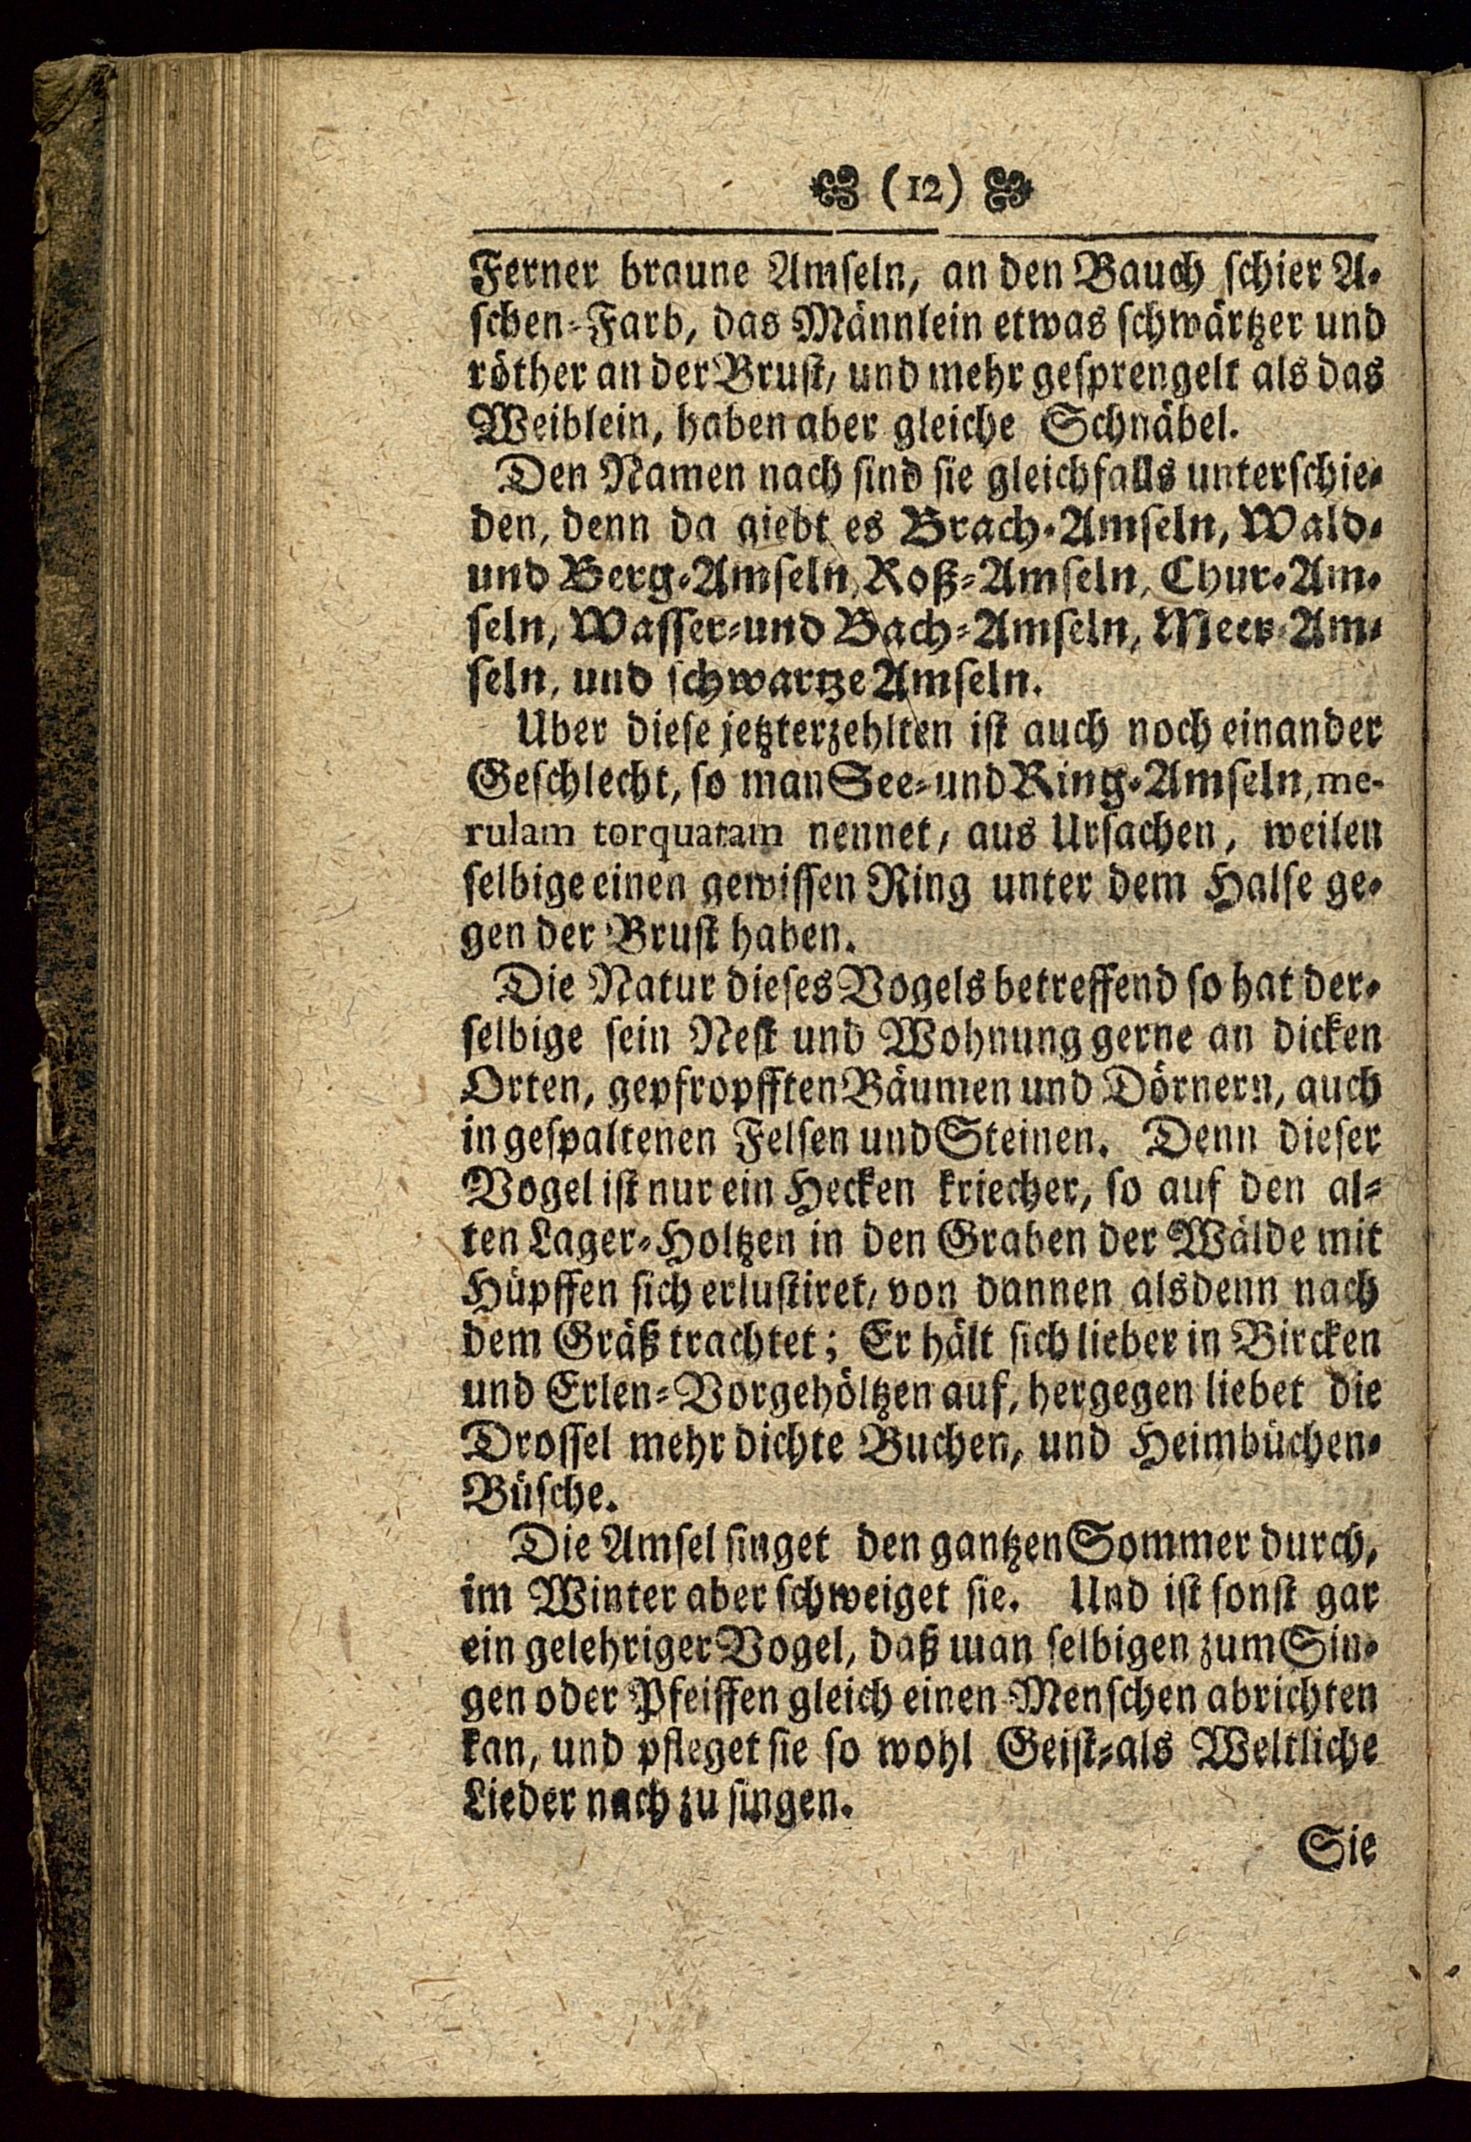 (12)
Ferner braune Amseln, an den Bauch schier A-
schen-Farb, das Männlein etwas schwärtzer und
röther an der Brust, und mehr gesprengelt als das
Weiblein, haben aber gleiche Schnäbel.
Den Namen nach sind sie gleichfalls unterschie-
den, denn da giebt es Brach-Amseln, Wald-
und Berg-Amseln, Roß-Amseln, Chur-Am-
seln, Wasser-und Bach-Amseln, Meer-Am-
seln, und schwartze Amseln.
Uber diese jetzterzehlten ist auch noch einander
Geschlecht, so man See-und Ring-Amseln, me-
rulam torquatam nennet, aus Ursachen, weilen
selbige einen gewissen Ring unter dem Halse ge-
gen der Brust haben.
Die Natur dieses Vogels betreffend so hat der-
selbige sein Nest und Wohnung gerne an dicken
Orten, gepfropfften Bäumen und Dörnern, auch
in gespaltenen Felsen und Steinen. Denn dieser
Vogel ist nur ein Hecken kriecher, so auf den al-
ten Lager-Holtzen in den Graben der Wälde mit
Hüpffen sich erlustiret, von dannen alsdenn nach
dem Gräß trachtet; Er hält sich lieber in Bircken
und Erlen-Vorgehöltzen auf, hergegen liebet die
Drossel mehr dichte Buchen, und Heimbüchen-
Büsche.
Die Amsel singet den gantzen Sommer durch,
im Winter aber schweiget sie. Und ist sonst gar
ein gelehriger Vogel, daß man selbigen zum Sin-
gen oder Pfeiffen gleich einen Menschen abrichten
kan, und pfleget sie so wohl Geist-als Weltliche
Lieder nach zu singen.
Sie